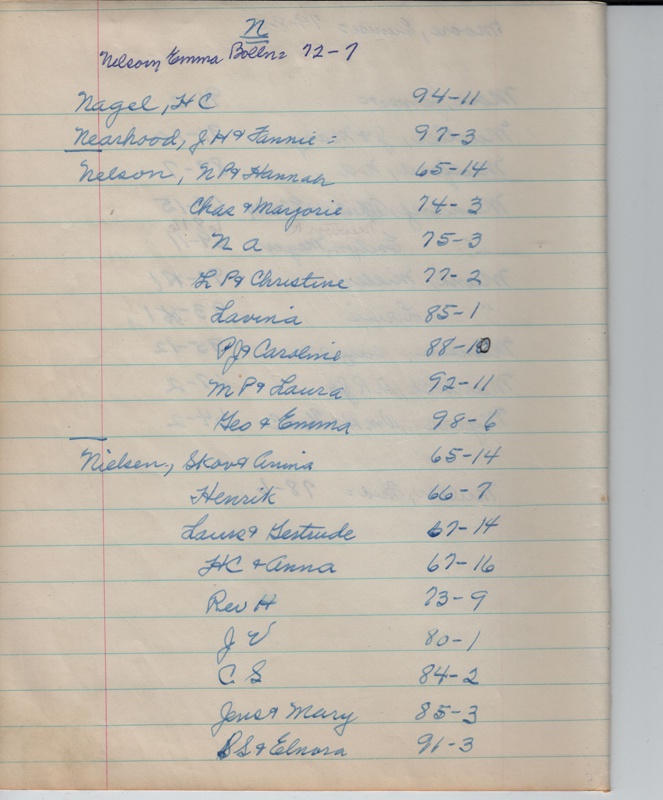 N
Nelson, Emma Bolln = 72-7
Nagel, HC 94-11
Nearhood, JH & Fannie = 97-3
Nelson, NP & Hannah 65-14
Chas & Marjorie 74-3
N A 75-3
L P & Christine 77-2
Lavina 85-1
PJ & Caroline 88-10
MP & Laura 92-11
Geo & Emma 98-6
Nielsen, Skov & Anina 65-14
Henrik 66-7
Laurs & Gertrude 67-14
HC & Anna 67-16
Rev H 73-9
J V 80-1
C S 84-2
Jens & Mary 85-3
SS & Elnora 91-3